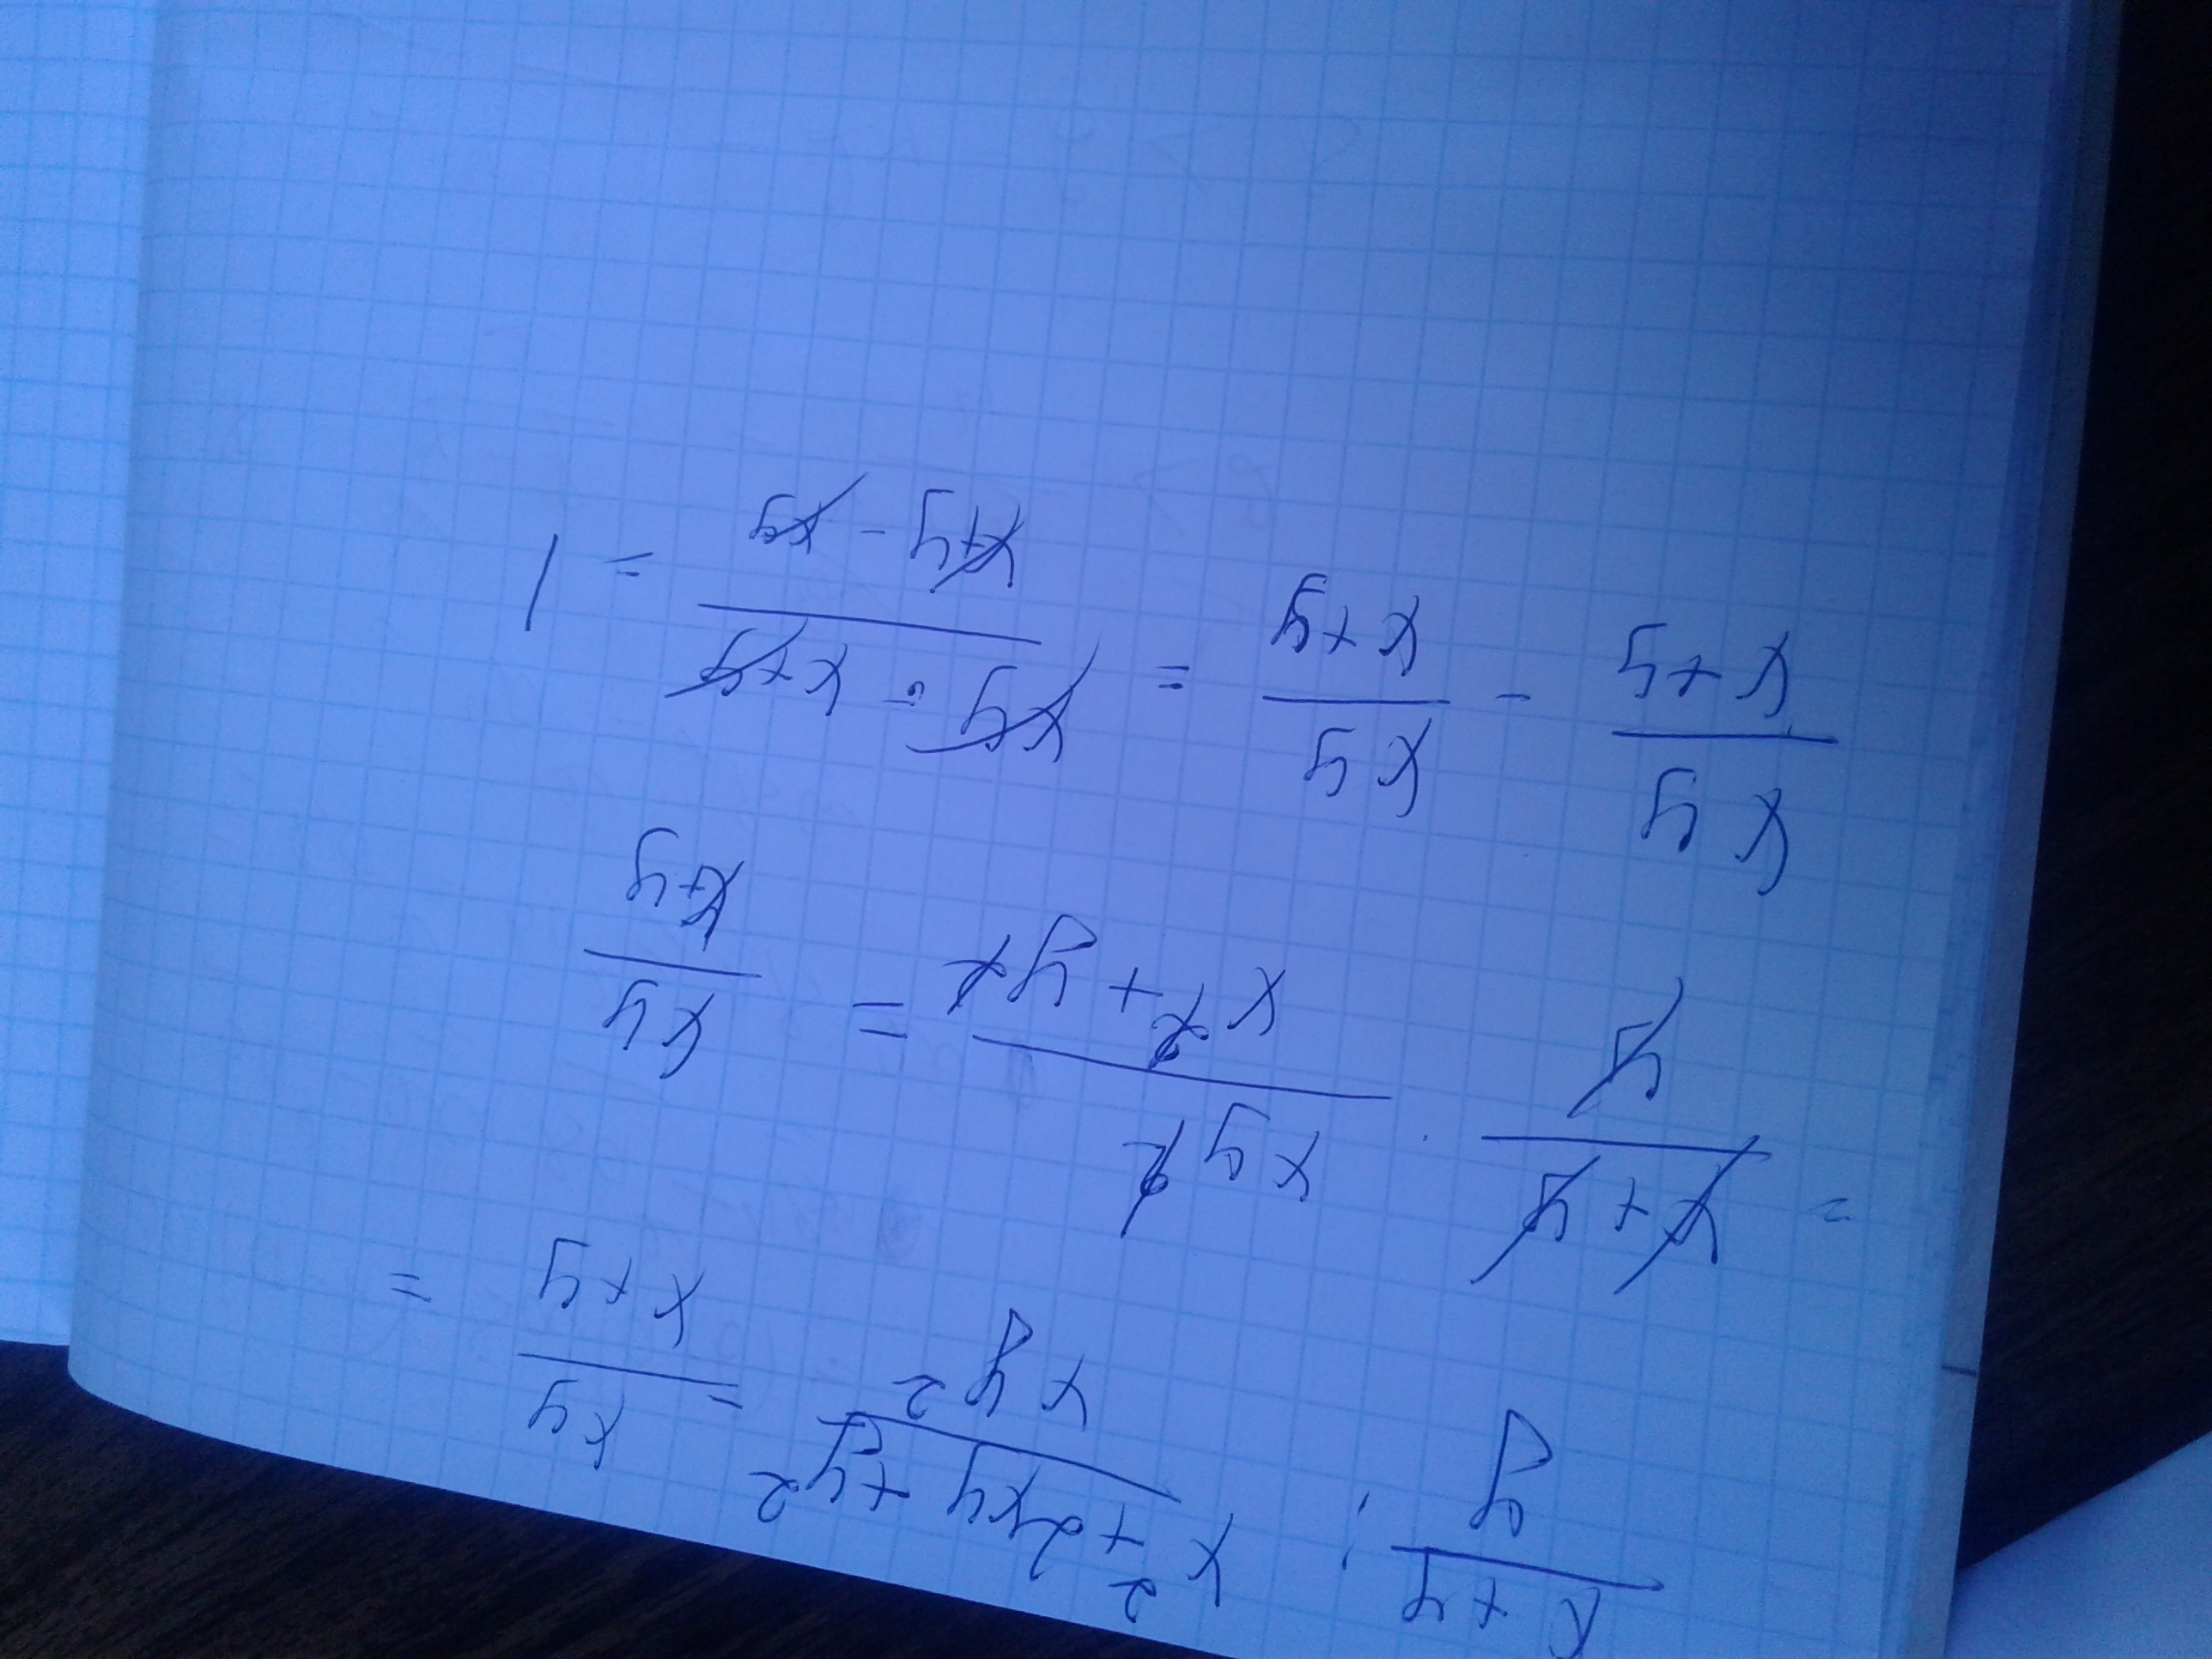 \frac{x+y}{y} : \frac{x^2+2xy+y^2}{xy^2} - \frac{xy}{x+y} =
= \frac{x+y}{y} \cdot \frac{xy^2}{x^2+y^2} = \frac{xy}{x+y}
\frac{xy}{x+y} - \frac{xy}{x+y} = \frac{xy \cdot x+y}{x+y - xy} = 1